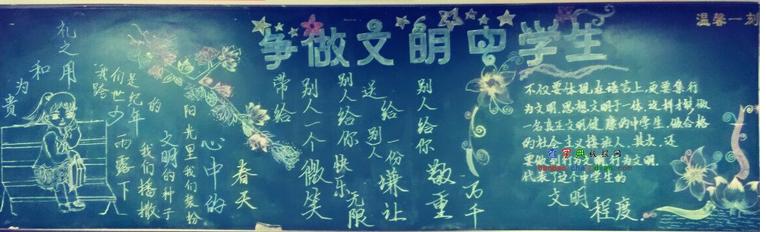 争做文明中学生
温馨一刻
礼之用
和
为
贵
我们播撒
文明的种子
阳光里我们装扮
心中的
春天
带给
别人一个微笑
别人给你快乐无限
送给别人
一份谦让
别人给你
敬重
万千
不仅要体现在语言上,更要集行
为文明,思想文明于一体,这样才能做
一名真正文明健康的中学生,做合格
代表了这个中学生的
文明
程度